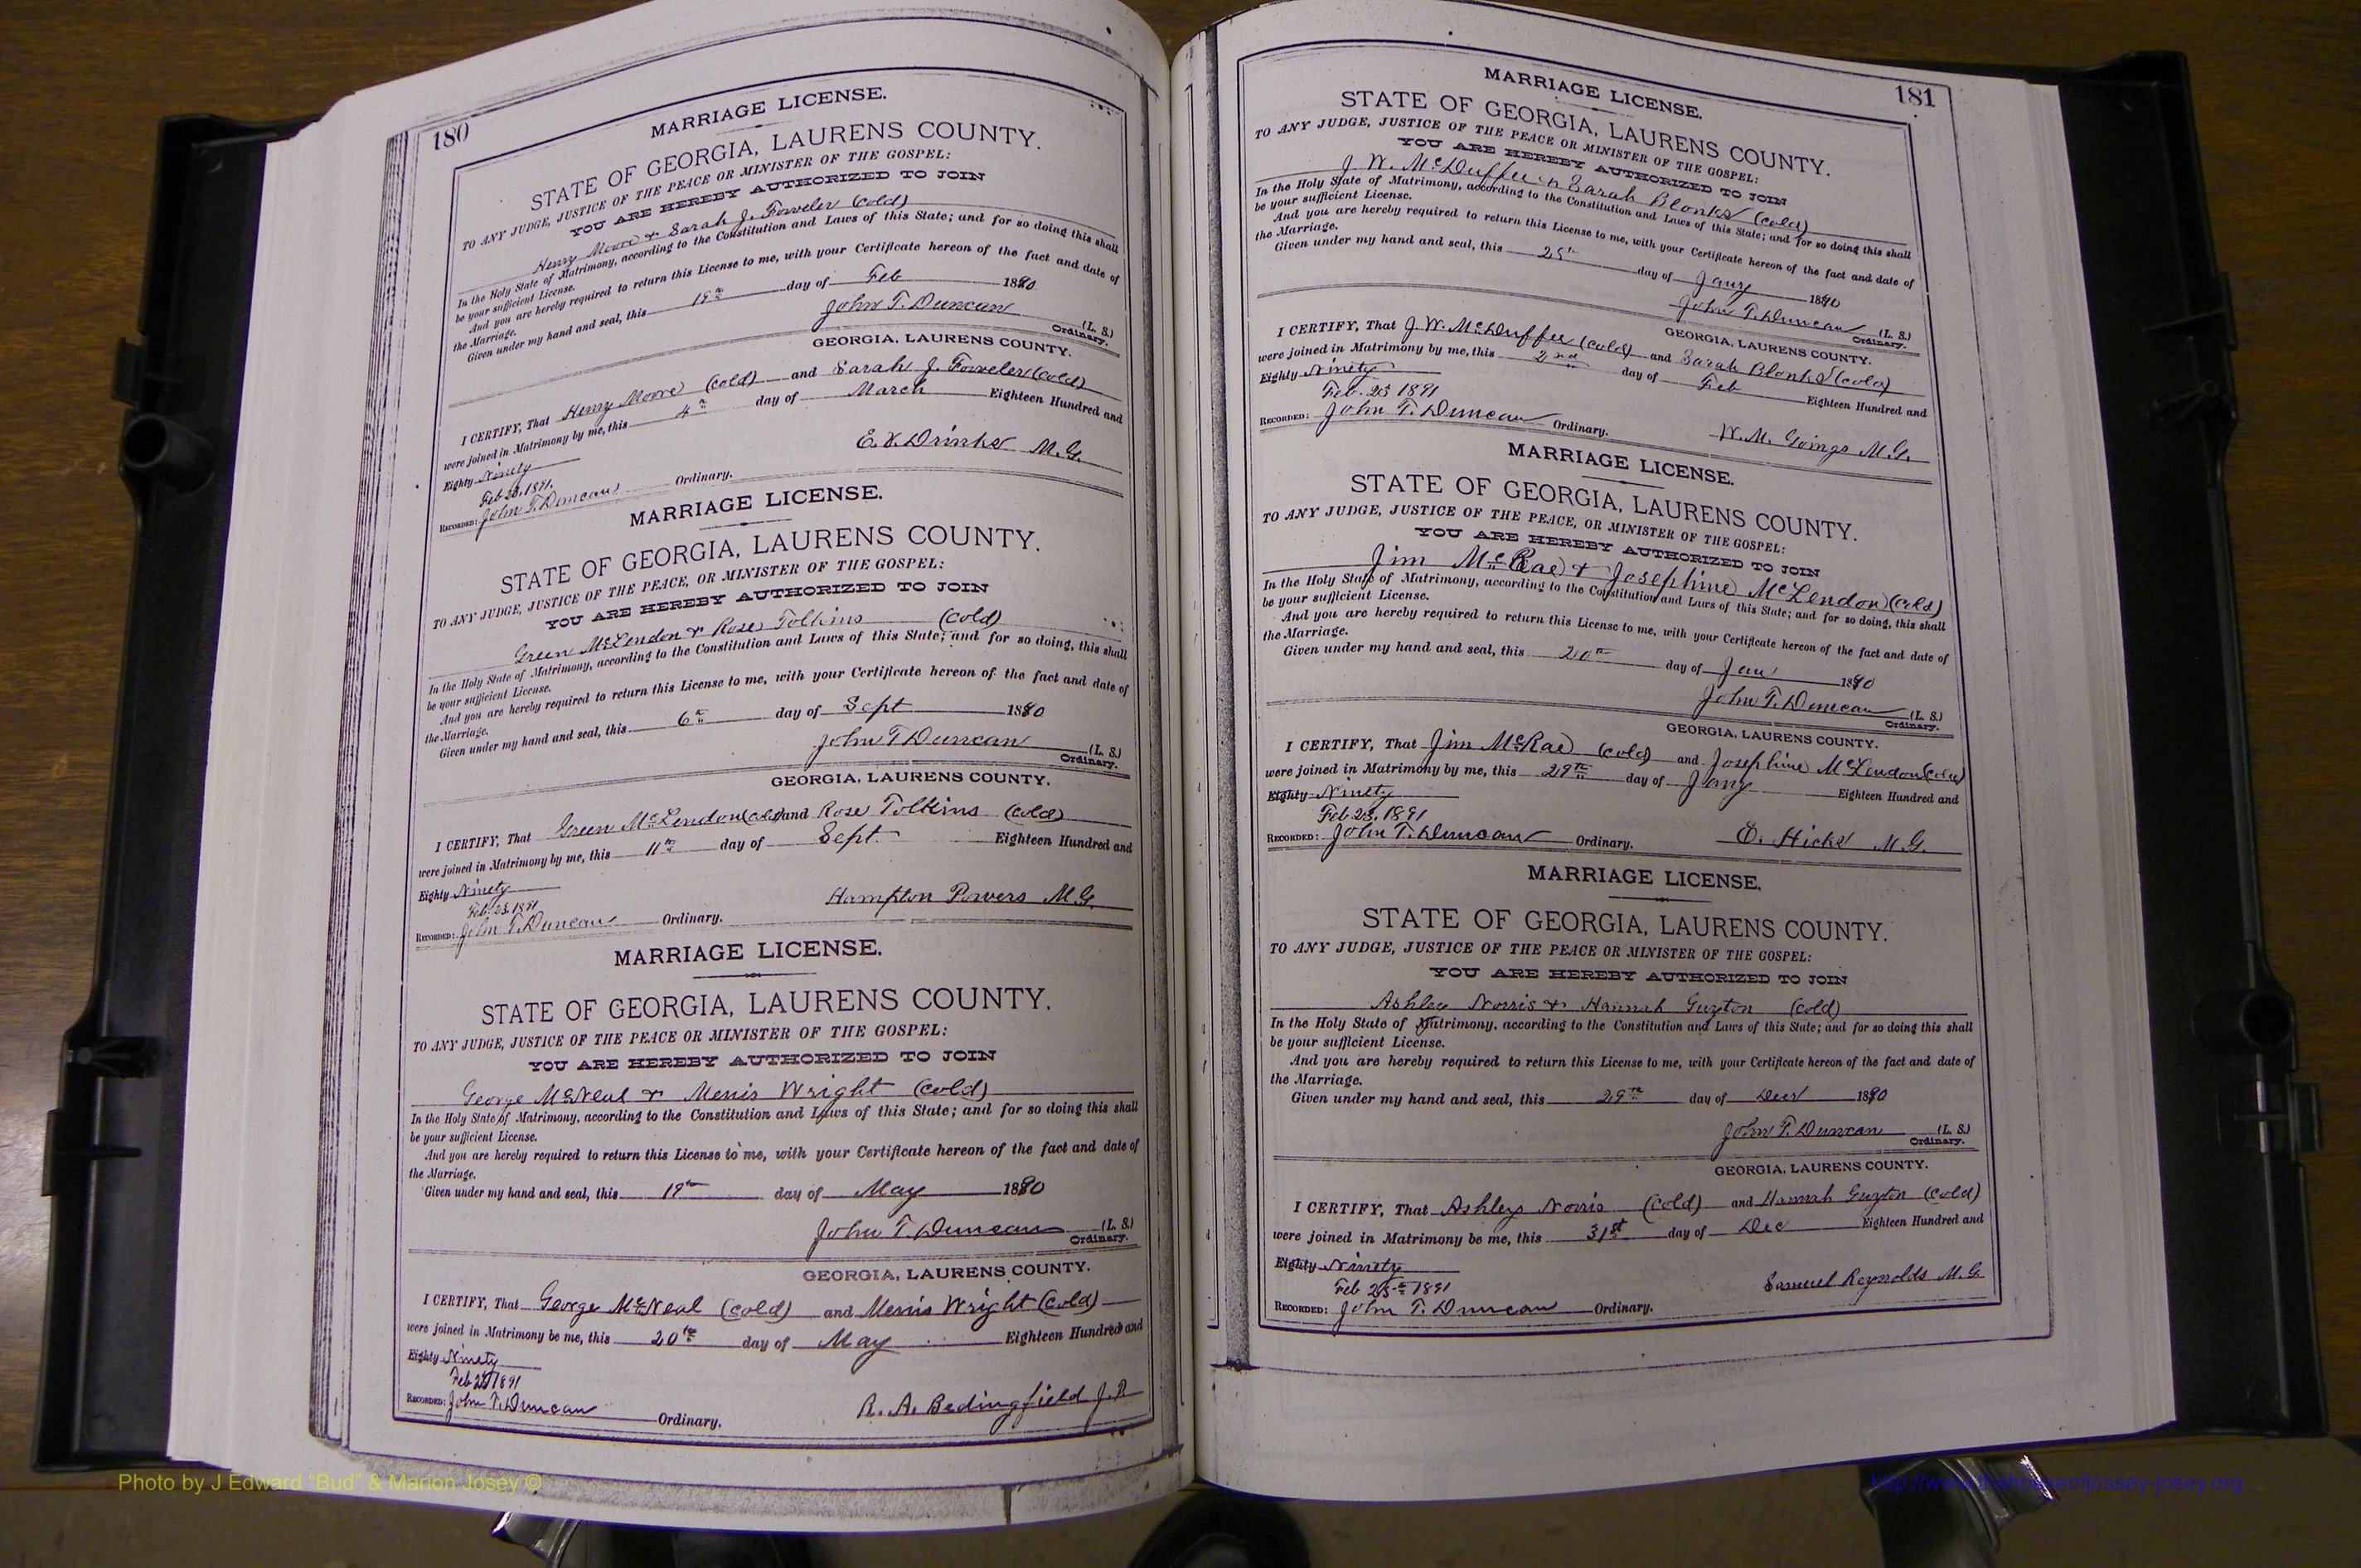 180
MARRIAGE LICENSE.
STATE OF GEORGIA, LAURENS COUNTY.
TO ANY JUDGE, JUSTICE OF THE PEACE OR MINISTER OF THE GOSPEL:
YOU ARE HEREBY AUTHORIZED TO JOIN
Henry Moore & Sarah J. Fowler (Cold)
In the Holy State of Matrimony, according to the Constitution and Laws of this State; and for so doing this shall
be your sufficient License.
And you are hereby required to return this License to me, with your Certificate hereon of the fact and date of
the Marriage.
Given under my hand and seal, this day of Feb 1890
John T. Duncan (L. S.)
Ordinary.
GEORGIA, LAURENS COUNTY.
I CERTIFY, That Henry Moore (Cold) and Sarah J. Fowler (Cold)
were joined in Matrimony by me, this 4th day of March Eighteen Hundred and
Eighty Ninety
Feb 23, 1891.
RECORDED: John T. Duncan Ordinary.
E. Drinks M.G.
MARRIAGE LICENSE.
STATE OF GEORGIA, LAURENS COUNTY.
TO ANY JUDGE, JUSTICE OF THE PEACE, OR MINISTER OF THE GOSPEL:
YOU ARE HEREBY AUTHORIZED TO JOIN
Green McLendon & Rose Tolkins (Cold)
In the Holy State of Matrimony, according to the Constitution and Laws of this State; and for so doing, this shall
be your sufficient License.
And you are hereby required to return this License to me, with your Certificate hereon of the fact and date of
the Marriage.
Given under my hand and seal, this 6th day of Sept 1890
John T Duncan (L. S.)
Ordinary.
GEORGIA, LAURENS COUNTY.
I CERTIFY, That Green McLendon (Cold) and Rose Tolkins (Cold)
were joined in Matrimony by me, this 11th day of Sept. Eighteen Hundred and
Eighty Ninety
Feb. 23, 1891
RECORDED: John T. Duncan Ordinary.
Hampton Powers M.G.
MARRIAGE LICENSE.
STATE OF GEORGIA, LAURENS COUNTY.
TO ANY JUDGE, JUSTICE OF THE PEACE OR MINISTER OF THE GOSPEL:
YOU ARE HEREBY AUTHORIZED TO JOIN
George McNeal & Menis Wright (Cold)
In the Holy State of Matrimony, according to the Constitution and Laws of this State; and for so doing this shall
be your sufficient License.
And you are hereby required to return this License to me, with your Certificate hereon of the fact and date of
the Marriage.
Given under my hand and seal, this 19th day of May 1890
John T. Duncan (L. S.)
Ordinary.
GEORGIA, LAURENS COUNTY.
I CERTIFY, That George McNeal (Cold) and Menis Wright (Cold)
were joined in Matrimony be me, this 20th day of May Eighteen Hundred and
Eighty Ninety
Feb 1891
RECORDED: John T. Duncan Ordinary.
R. A. Bedingfield J.P.
181
MARRIAGE LICENSE.
STATE OF GEORGIA, LAURENS COUNTY.
TO ANY JUDGE, JUSTICE OF THE PEACE OR MINISTER OF THE GOSPEL:
YOU ARE HEREBY AUTHORIZED TO JOIN
J. W. McDuffee & Sarah Blonks (Cold)
In the Holy State of Matrimony, according to the Constitution and Laws of this State; and for so doing this shall
be your sufficient License.
And you are hereby required to return this License to me, with your Certificate hereon of the fact and date of
the Marriage.
Given under my hand and seal, this 25th day of Jany 1890
John T. Duncan (L. S.)
Ordinary.
GEORGIA, LAURENS COUNTY.
I CERTIFY, That J. W. McDuffee (Cold) and Sarah Blonks (Cold)
were joined in Matrimony by me, this 2nd day of Feb Eighteen Hundred and
Eighty Ninety
Feb. 23 1891
RECORDED: John T. Duncan Ordinary.
W. M. Goings M.G.
MARRIAGE LICENSE.
STATE OF GEORGIA, LAURENS COUNTY.
TO ANY JUDGE, JUSTICE OF THE PEACE, OR MINISTER OF THE GOSPEL:
YOU ARE HEREBY AUTHORIZED TO JOIN
Jim McRae & Josephine McLendon (Cold)
In the Holy State of Matrimony, according to the Constitution and Laws of this State; and for so doing, this shall
be your sufficient License.
And you are hereby required to return this License to me, with your Certificate hereon of the fact and date of
the Marriage.
Given under my hand and seal, this 20th day of Jan 1890
John T. Duncan (L. S.)
Ordinary.
GEORGIA, LAURENS COUNTY.
I CERTIFY, That Jim McRae (Cold) and Josephine McLendon (Cold)
were joined in Matrimony by me, this 29th day of Jany Eighteen Hundred and
Eighty Ninety
Feb 23, 1891
RECORDED: John T. Duncan Ordinary.
O. Hicks M.G.
MARRIAGE LICENSE.
STATE OF GEORGIA, LAURENS COUNTY.
TO ANY JUDGE, JUSTICE OF THE PEACE OR MINISTER OF THE GOSPEL:
YOU ARE HEREBY AUTHORIZED TO JOIN
Ashley Norris & Hannah Guyton (Cold)
In the Holy State of Matrimony, according to the Constitution and Laws of this State; and for so doing this shall
be your sufficient License.
And you are hereby required to return this License to me, with your Certificate hereon of the fact and date of
the Marriage.
Given under my hand and seal, this 29th day of Decr 1890
John T. Duncan (L. S.)
Ordinary.
GEORGIA, LAURENS COUNTY.
I CERTIFY, That Ashley Norris (Cold) and Hannah Guyton (Cold)
were joined in Matrimony be me, this 31st day of Dec Eighteen Hundred and
Eighty Ninety
Feb 1891
RECORDED: John T. Duncan Ordinary.
Samuel Reynolds M.G.
Photo by J Edward "Bud" & Marion Josey ©
http://www.thehouseofjossey-josey.org